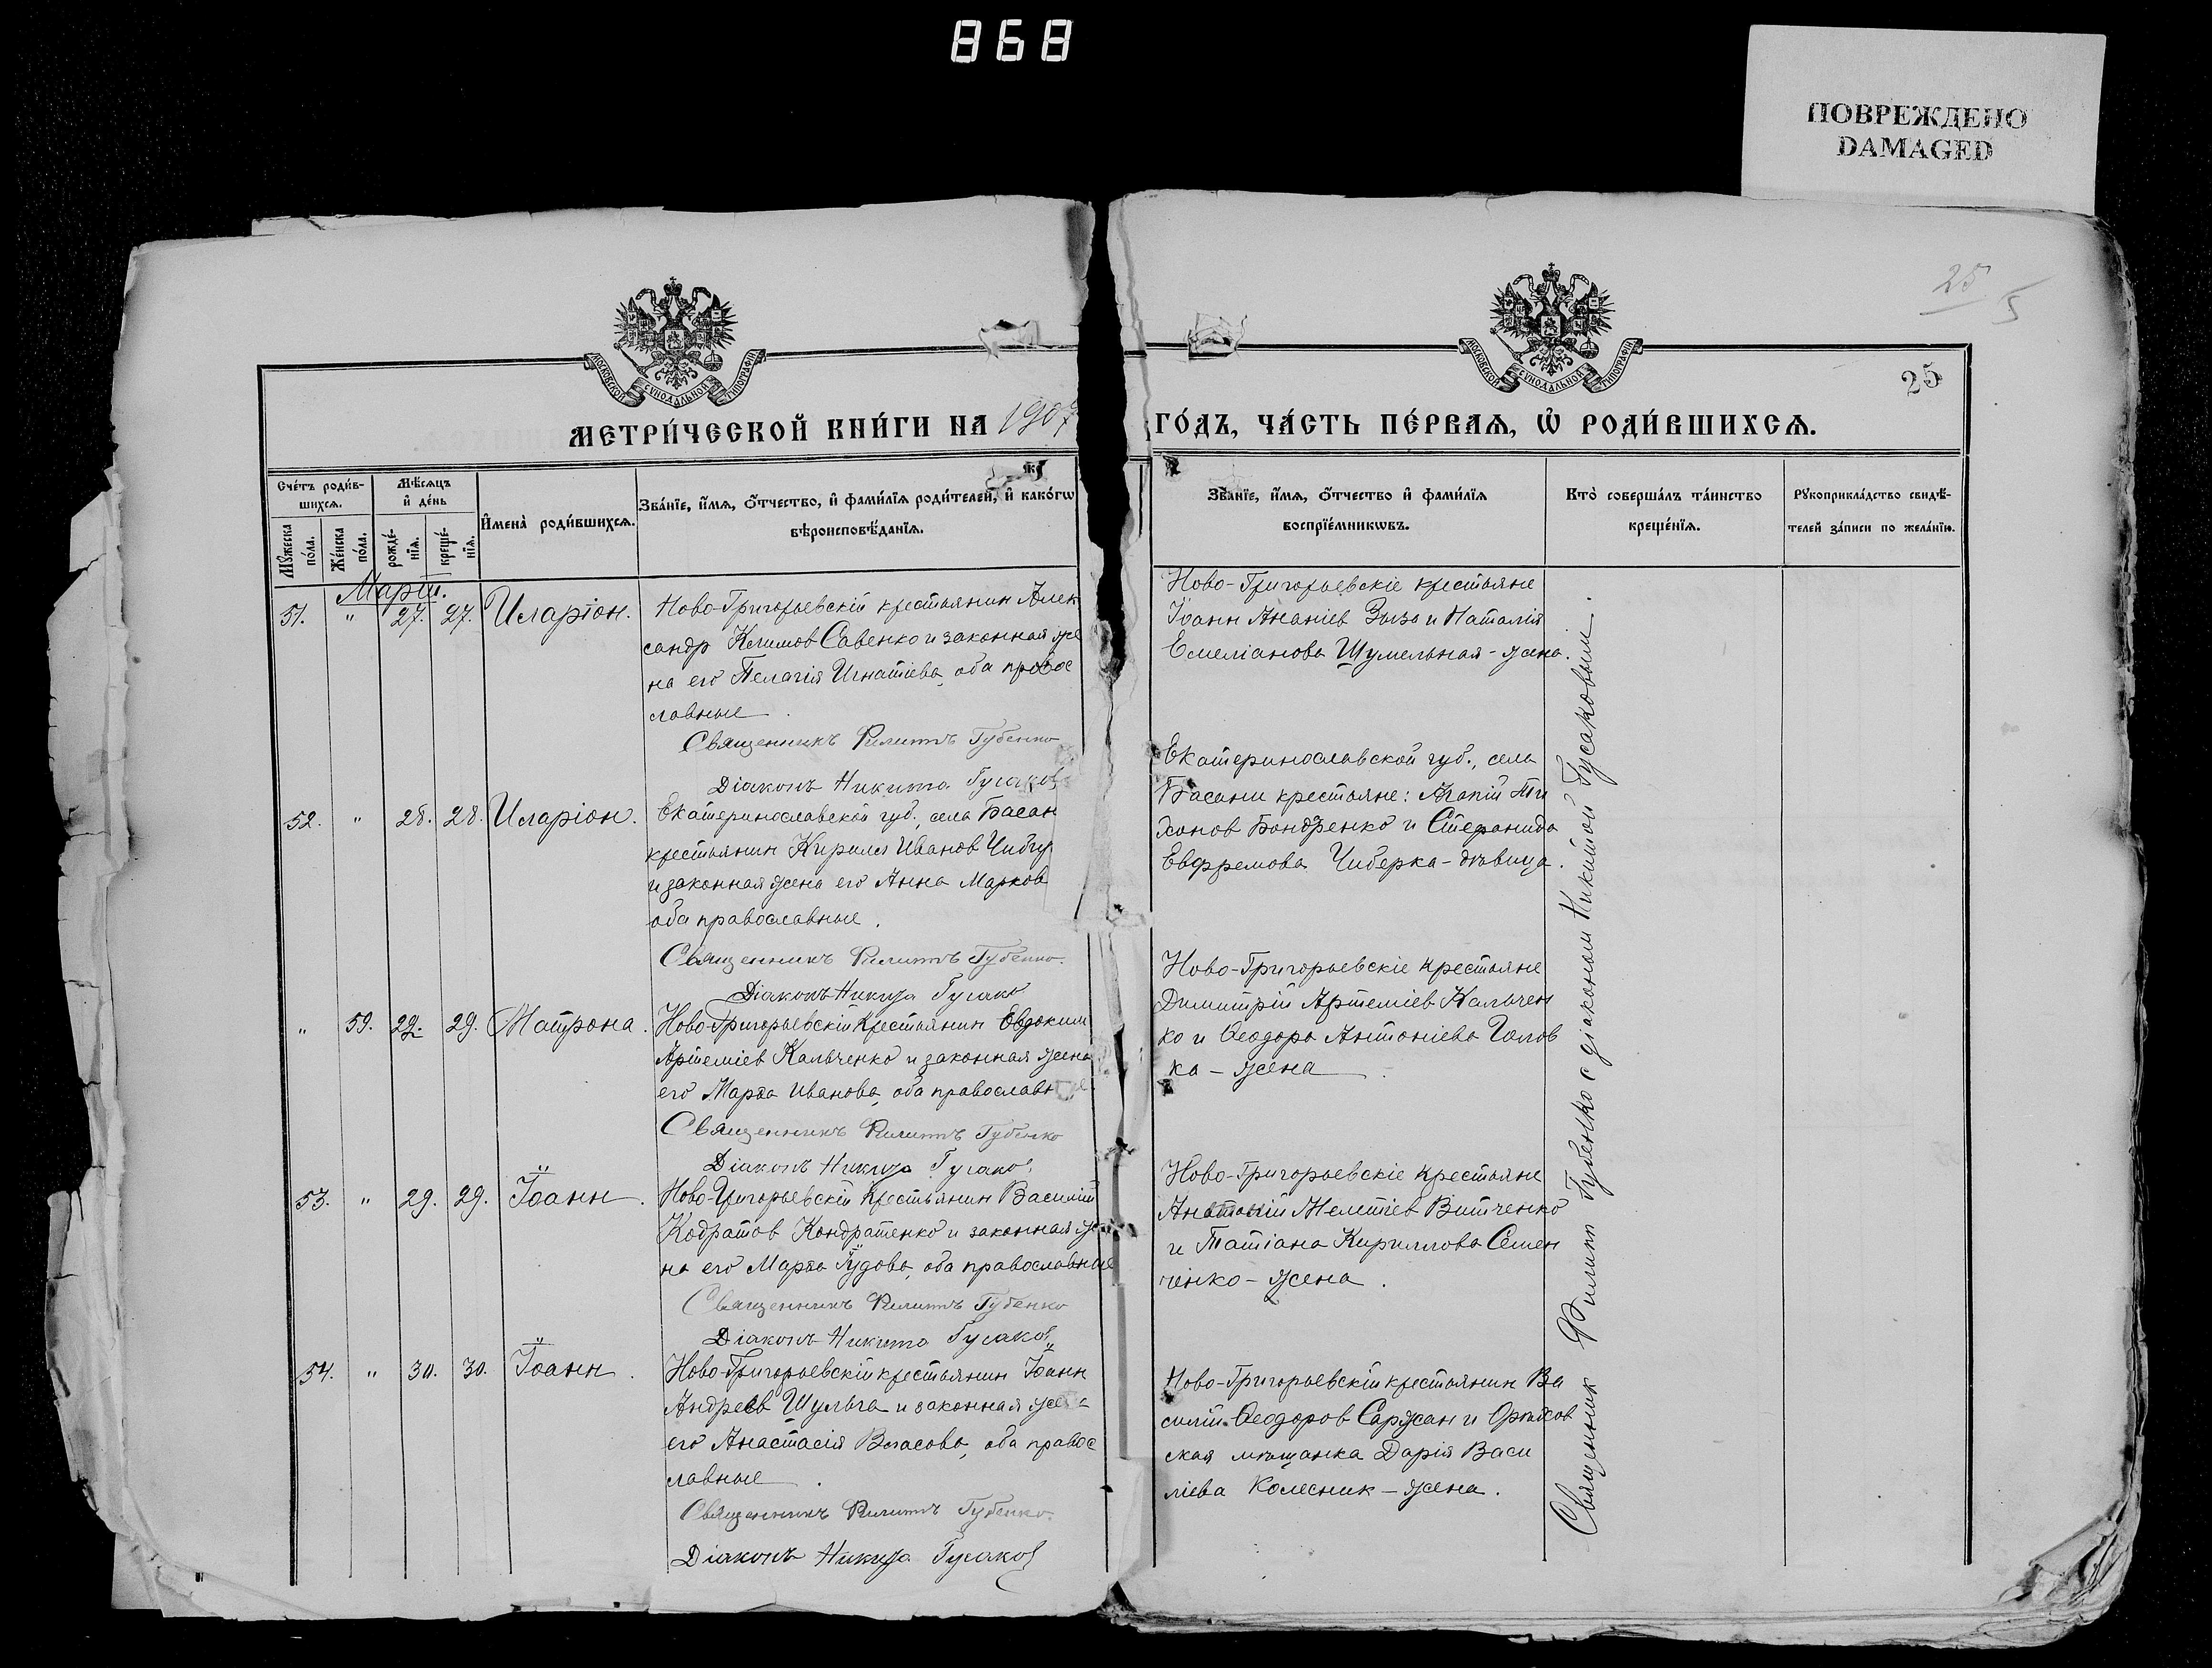 868
ПОВРЕЖДЕНО
DAMAGED
25
5
25
МОСКОВСКОЙ СУНОДАЛЬНОЙ ТИПОГРАФІИ
МОСКОВСКОЙ СУНОДАЛЬНОЙ ТИПОГРАФІИ
МЕТРИ́ЧЕСКОЙ КНИ́ГИ НА 1907
ГО́ДЪ, ЧА́СТЬ ПЕ́РВАѦ, Ѡ҆ РОДИ́ВШИХСѦ.
Сче́тъ роди́в-
шихсѧ.
Мѣ́сѧцъ
и҆ де́нь
Мꙋ́жеска
по́ла.
Же́нска
по́ла.
рожде́-
нїѧ.
креще́-
нїѧ.
И҆мена̀ роди́вшихсѧ.
Зва́нїе, и҆́мѧ, ѻ҆́тчество, и҆ фами́лїѧ роди́телей, и҆ како́гѡ
вѣроисповѣ́данїѧ.
Зва́нїе, и҆́мѧ, ѻ҆́тчество и҆ фами́лїѧ
воспрїе́мникѡвъ.
Кто̀ соверша́лъ та́инство
креще́нїѧ.
Рꙋкоприкла́дство свидѣ́-
телей за́писи по жела́нїю.
Мартъ.
51. " 27. 27. Иларіон.
Ново-Григорьевскій крестьянин Алек
сандр Климов Савенко и законная же
на его Пелагія Игнатіева, оба правос
лавные
Священникъ Филиппъ Губенко
Діаконъ Никита Гусаков
Ново-Григорьевскіе крестьяне
Іоанн Ананіев Зызо и Наталія
Емеліанова Шумельная - жена.
52. " 28. 28. Иларіон.
Екатеринославской губ., села Басан
крестьянин Кирилл Иванов Чибер
и законная жена его Анна Марков
оба православные.
Священникъ Филиппъ Губенко.
Діаконъ Никита Гусако
Екатеринославской губ., села
Басани крестьяне: Агапій Ти
хонов Бондренко и Стефанида
Евфремова Чиберка - дѣвица.
" 59. 29. 29. Матрона.
Ново-Григорьевскій крестьянин Евдоким
Артеміев Кальченко и законная жена
его Марѳа Иванова, оба православные
Священникъ Филиппъ Губенко
Діаконъ Никита Гусако
Ново-Григорьевскіе крестьяне
Димитрій Артеміев Кальчен
ко и Ѳеодора Антоніева Голов
ка - жена
53. " 29. 29. Іоанн.
Ново-Григорьевскій крестьянин Василій
Кодратов Кондратенко и законная же
на его Марѳа Іудова, оба православные
Священникъ Филиппъ Губенко
Діаконъ Никита Гусаков
Ново-Григорьевскіе крестьяне
Анатолій Мелетіев Витченко
и Татіана Кириллова Семен
ченко - жена.
54. " 30. 30. Іоанн.
Ново-Григорьевскій крестьянин Іоанн
Андреев Шульга и законная жена
его Анастасія Власова, оба правос
лавные
Священникъ Филиппъ Губенко.
Діаконъ Никита Гусаков
Ново-Григорьевскій крестьянин Ва
силій Ѳеодоров Саржан и Орѣхов
ская мѣщанка Дарія Васи
ліева Колесник - жена.
Священник Филипп Губенко с діаконом Никитой Гусаковым.